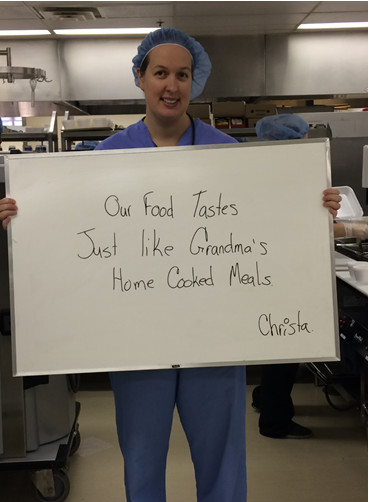 Our Food Tastes
Just like Grandma's
Home Cooked Meals.
Christa.